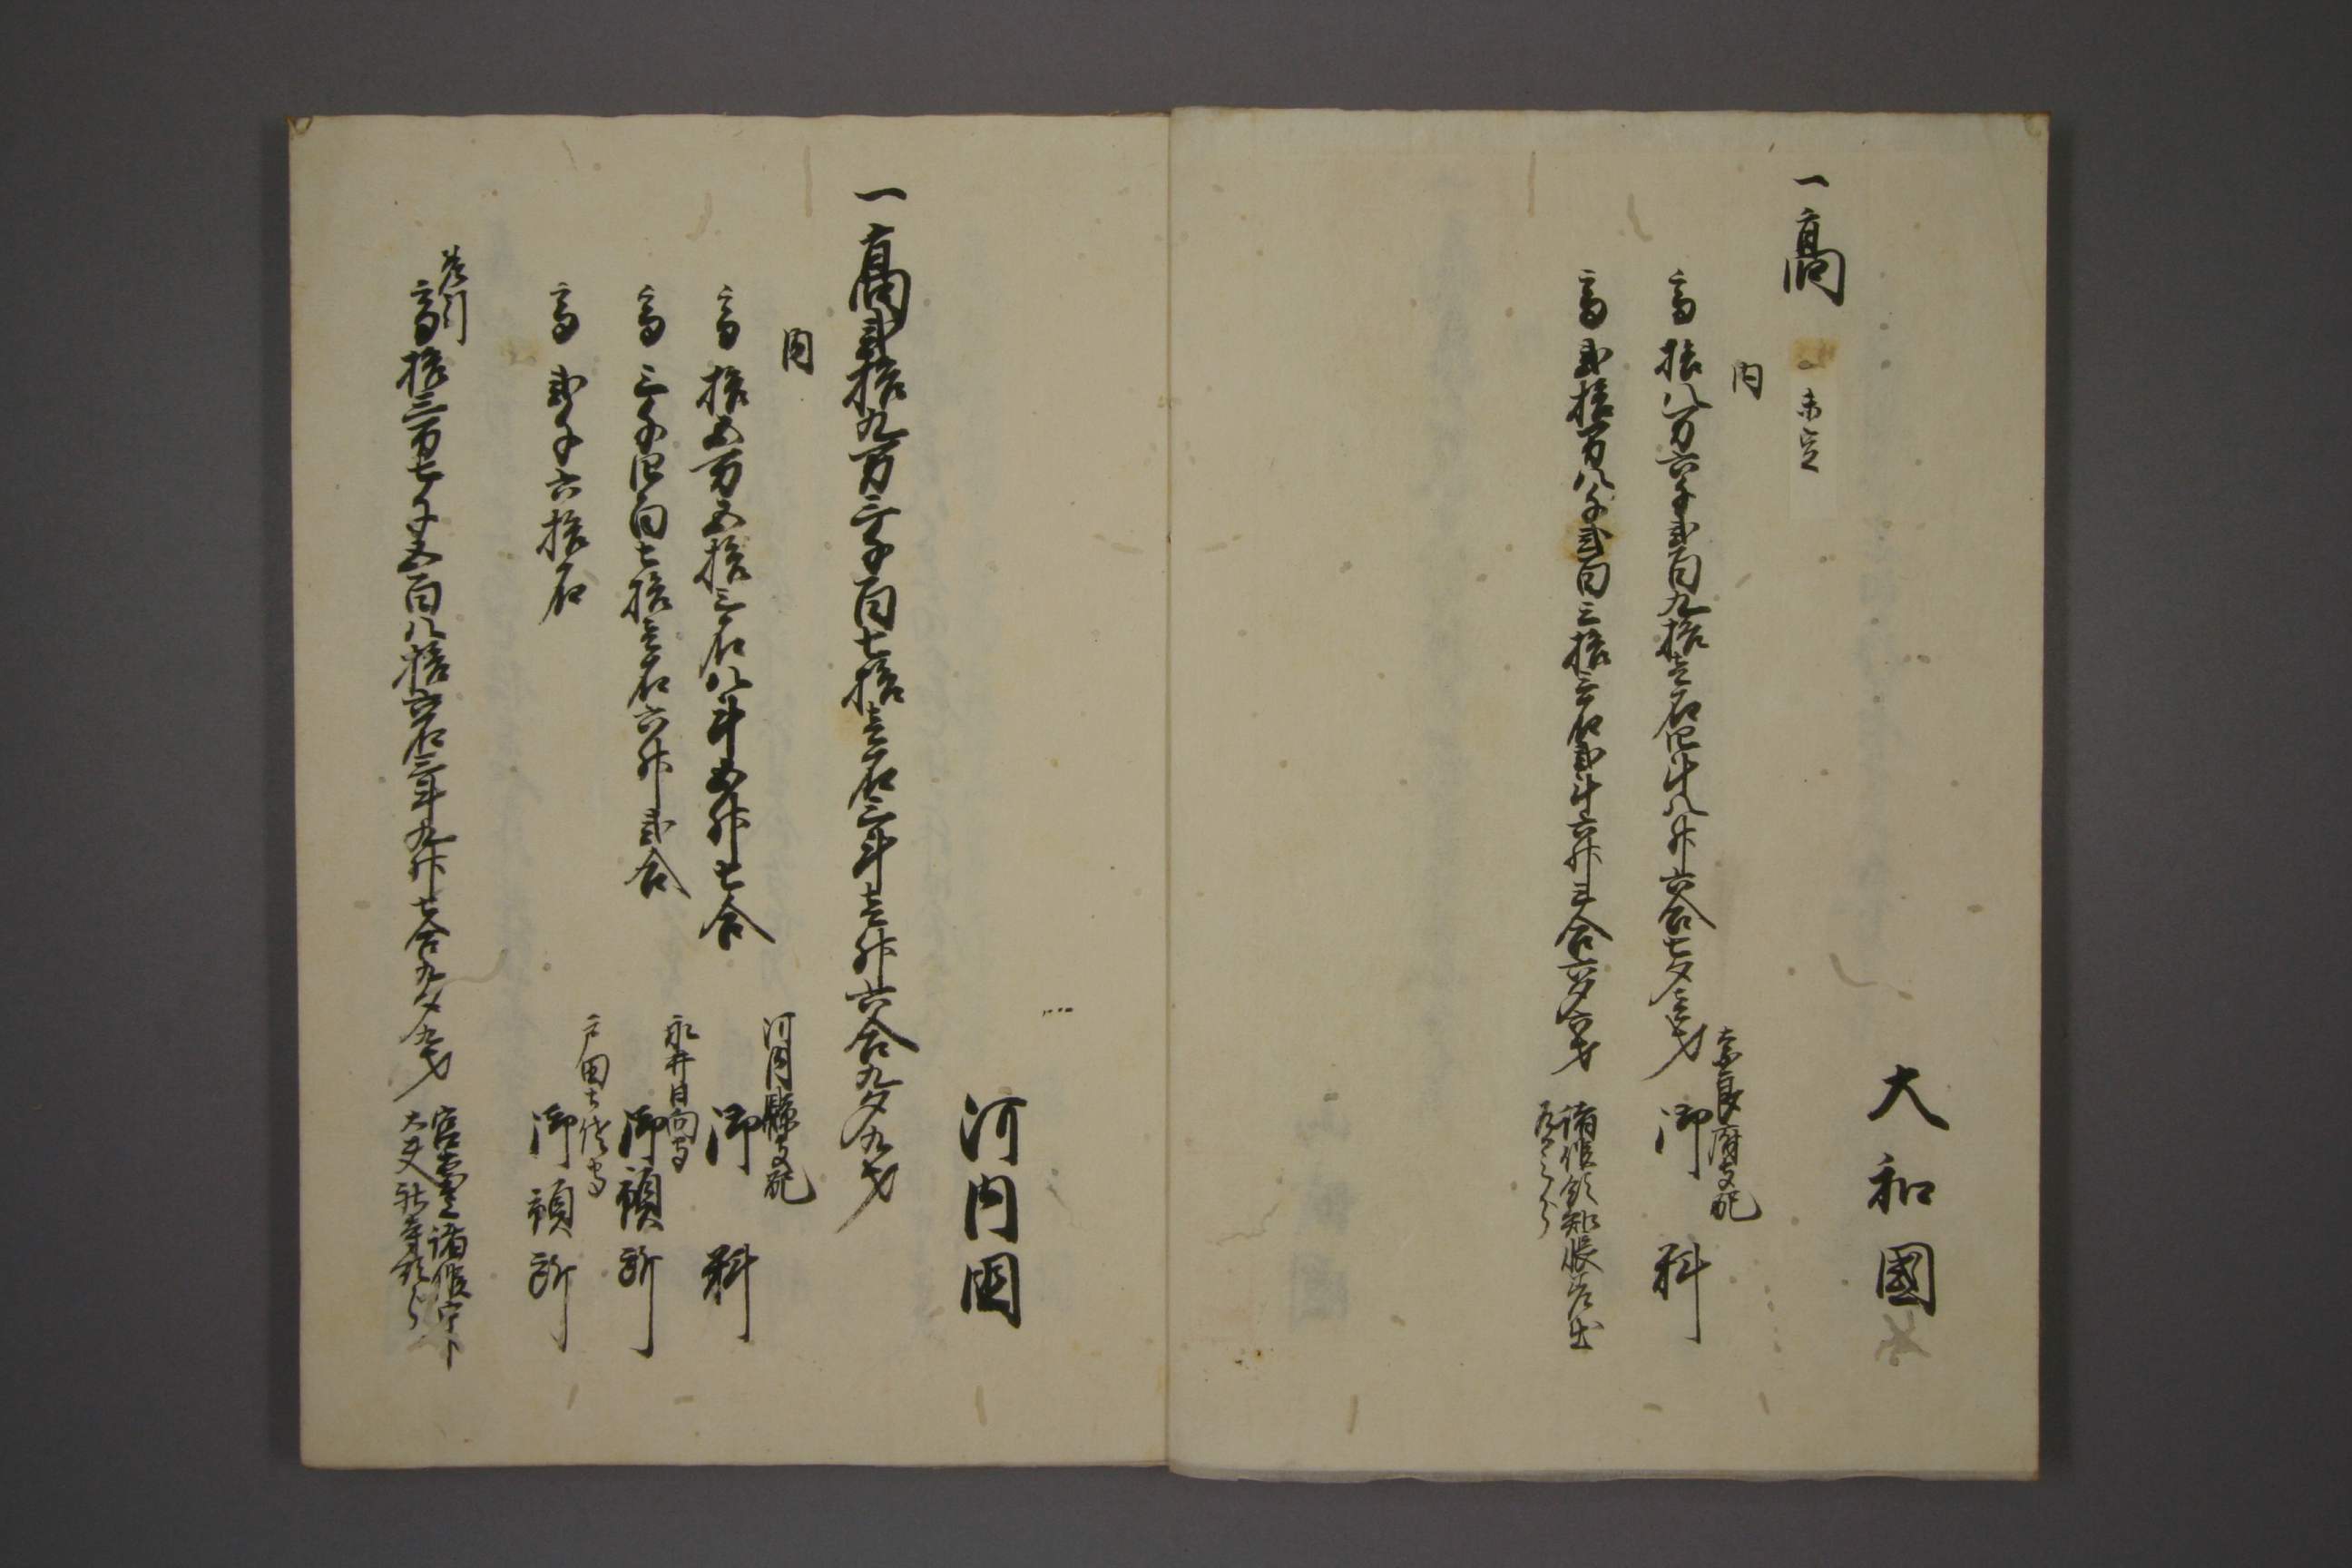 大和國
一高 未定
内
高拾八万六千弐百九拾壱石四斗八升六合七夕壱才 奈良府支配 御料
高弐拾万八千弐百三拾三石弐斗六升三合六夕六才 諸侯領知帳差出
一高弐拾九万三千百七拾壱石三斗壱升六合九夕九才 河内国
内
高拾五万五拾三石八斗五升七合 河内縣支配 御料
高三千四百七拾壱石六升弐合 永井日向守 御預所
高弐千六拾石 戸田土佐守 御預所
差引
高拾三万七千五百八拾六石三斗九升七合九夕九才 宮堂上諸侯中下
大夫社寺領分